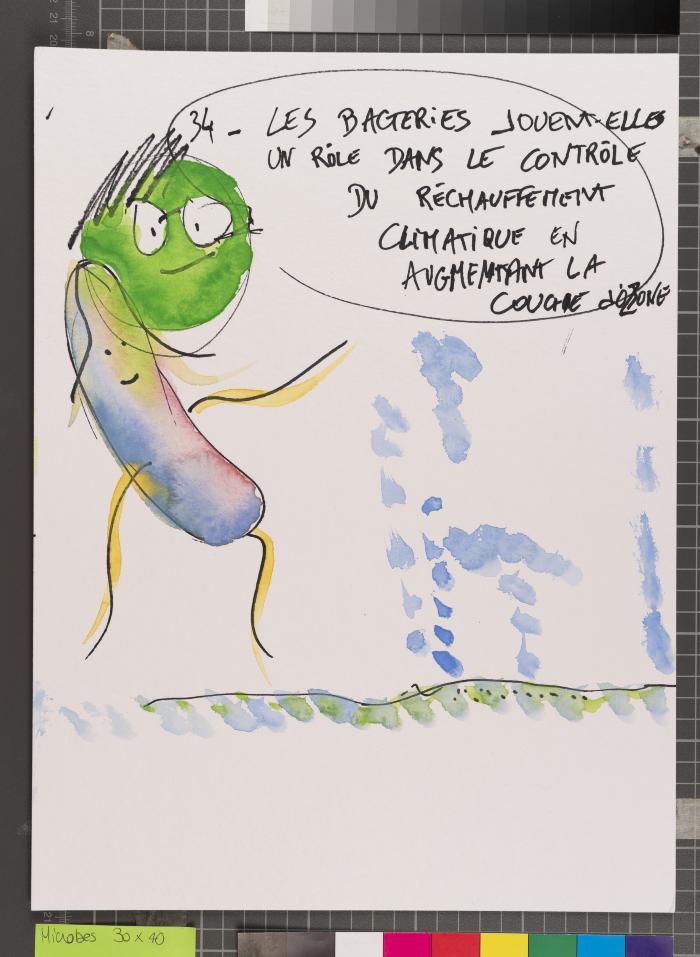 34 - LES BACTERIES JOUENT-ELLES
UN RÔLE DANS LE CONTRÔLE
DU RÉCHAUFFEMENT
CLIMATIQUE EN
AUGMENTANT LA
COUCHE d'OZONE
Microbes 30 x 40